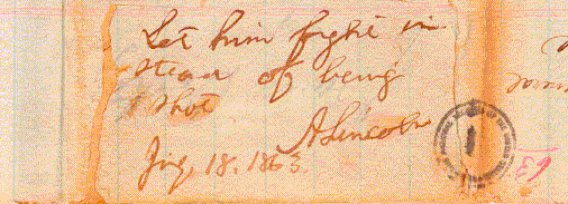 Let him fight in
stead of being
shot
A Lincoln
July, 18. 1863.
63